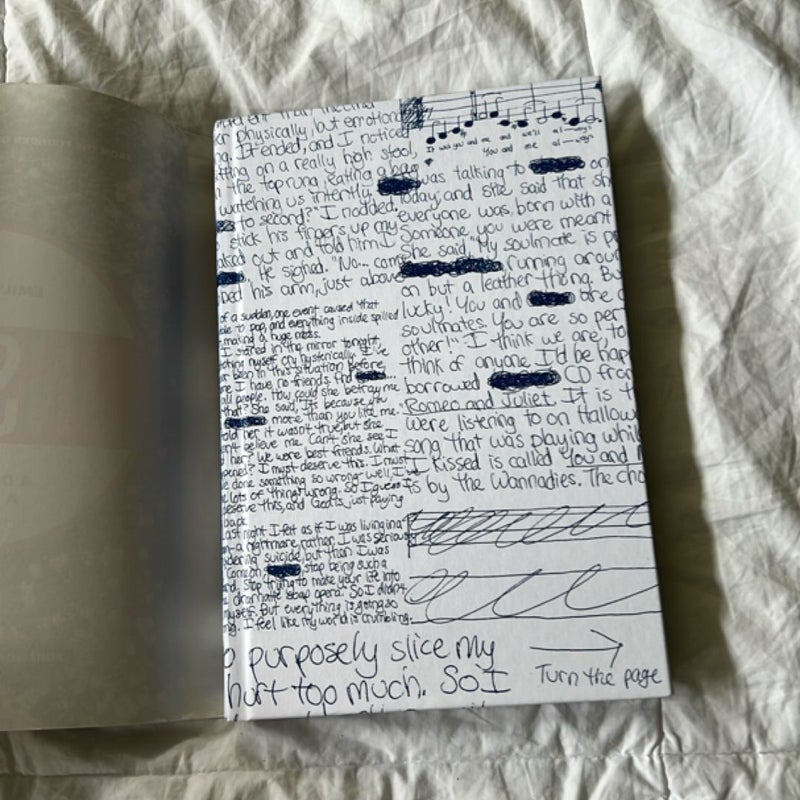 er physically, but emotiona
ng. It ended, and I noticed
tting on a really high stool,
n the top rung, eating a bag
watching us intently.
a second?" I nodded.
stick his fingers up my
out and told him I
. He sighed. "No... com
ped his arm, just above
of a sudden, one event caused that
ble to pop, and everything inside spilled
making a huge mess.
I stared in the mirror tonight,
ching myself cry hysterically. I've
er been in this situation before
re I have no friends. And
all people. How could she betray me
that? She said, It's because you
more than you like me.
old her it wasn't true, but she
n't believe me. Can't she see I
her? We were best friends. What
pened? I must deserve this. I must
e done something so wrong-well, I've
lots of things wrong. So I guess I
eserve this, and God is just paying
back.
Last night I felt as if I was living in a
a nightmare, rather. I was seriously
dering suicide, but than I was
Come on, stop being such a
, stop trying to make your life into
dramatic soap opera. So I didn't
myself. But everything is going so
ng. I feel like my world is crumbling.
o purposely slice my
hurt top much. So I
It was you and me and we'll al-ways
You and me al-ways
was talking to on
today and she said that sh
everyone was born with a
Someone you were meant
She said, "My soulmate is pr
running arour
on but a leather thong. Bu
lucky! You and are c
soulmates. You are so per
other!" I think we are, to
think of anyone I'd be hap
borrowed CD from
Romeo and Juliet. It is t
were listening to on Hallow
song that was playing whil
I kissed is called You and M
is by the Wannadies. The cho
Turn the page